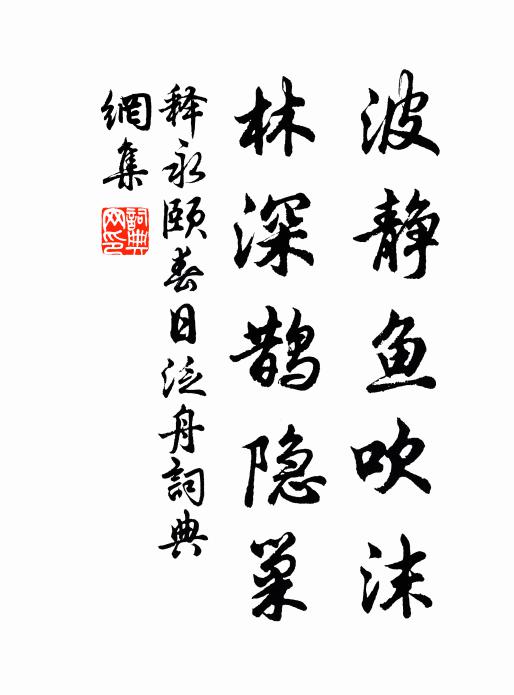 波静鱼吹沫
林深鹊隐巢
释永颐春日泛舟詞典
網集
詞典
网印